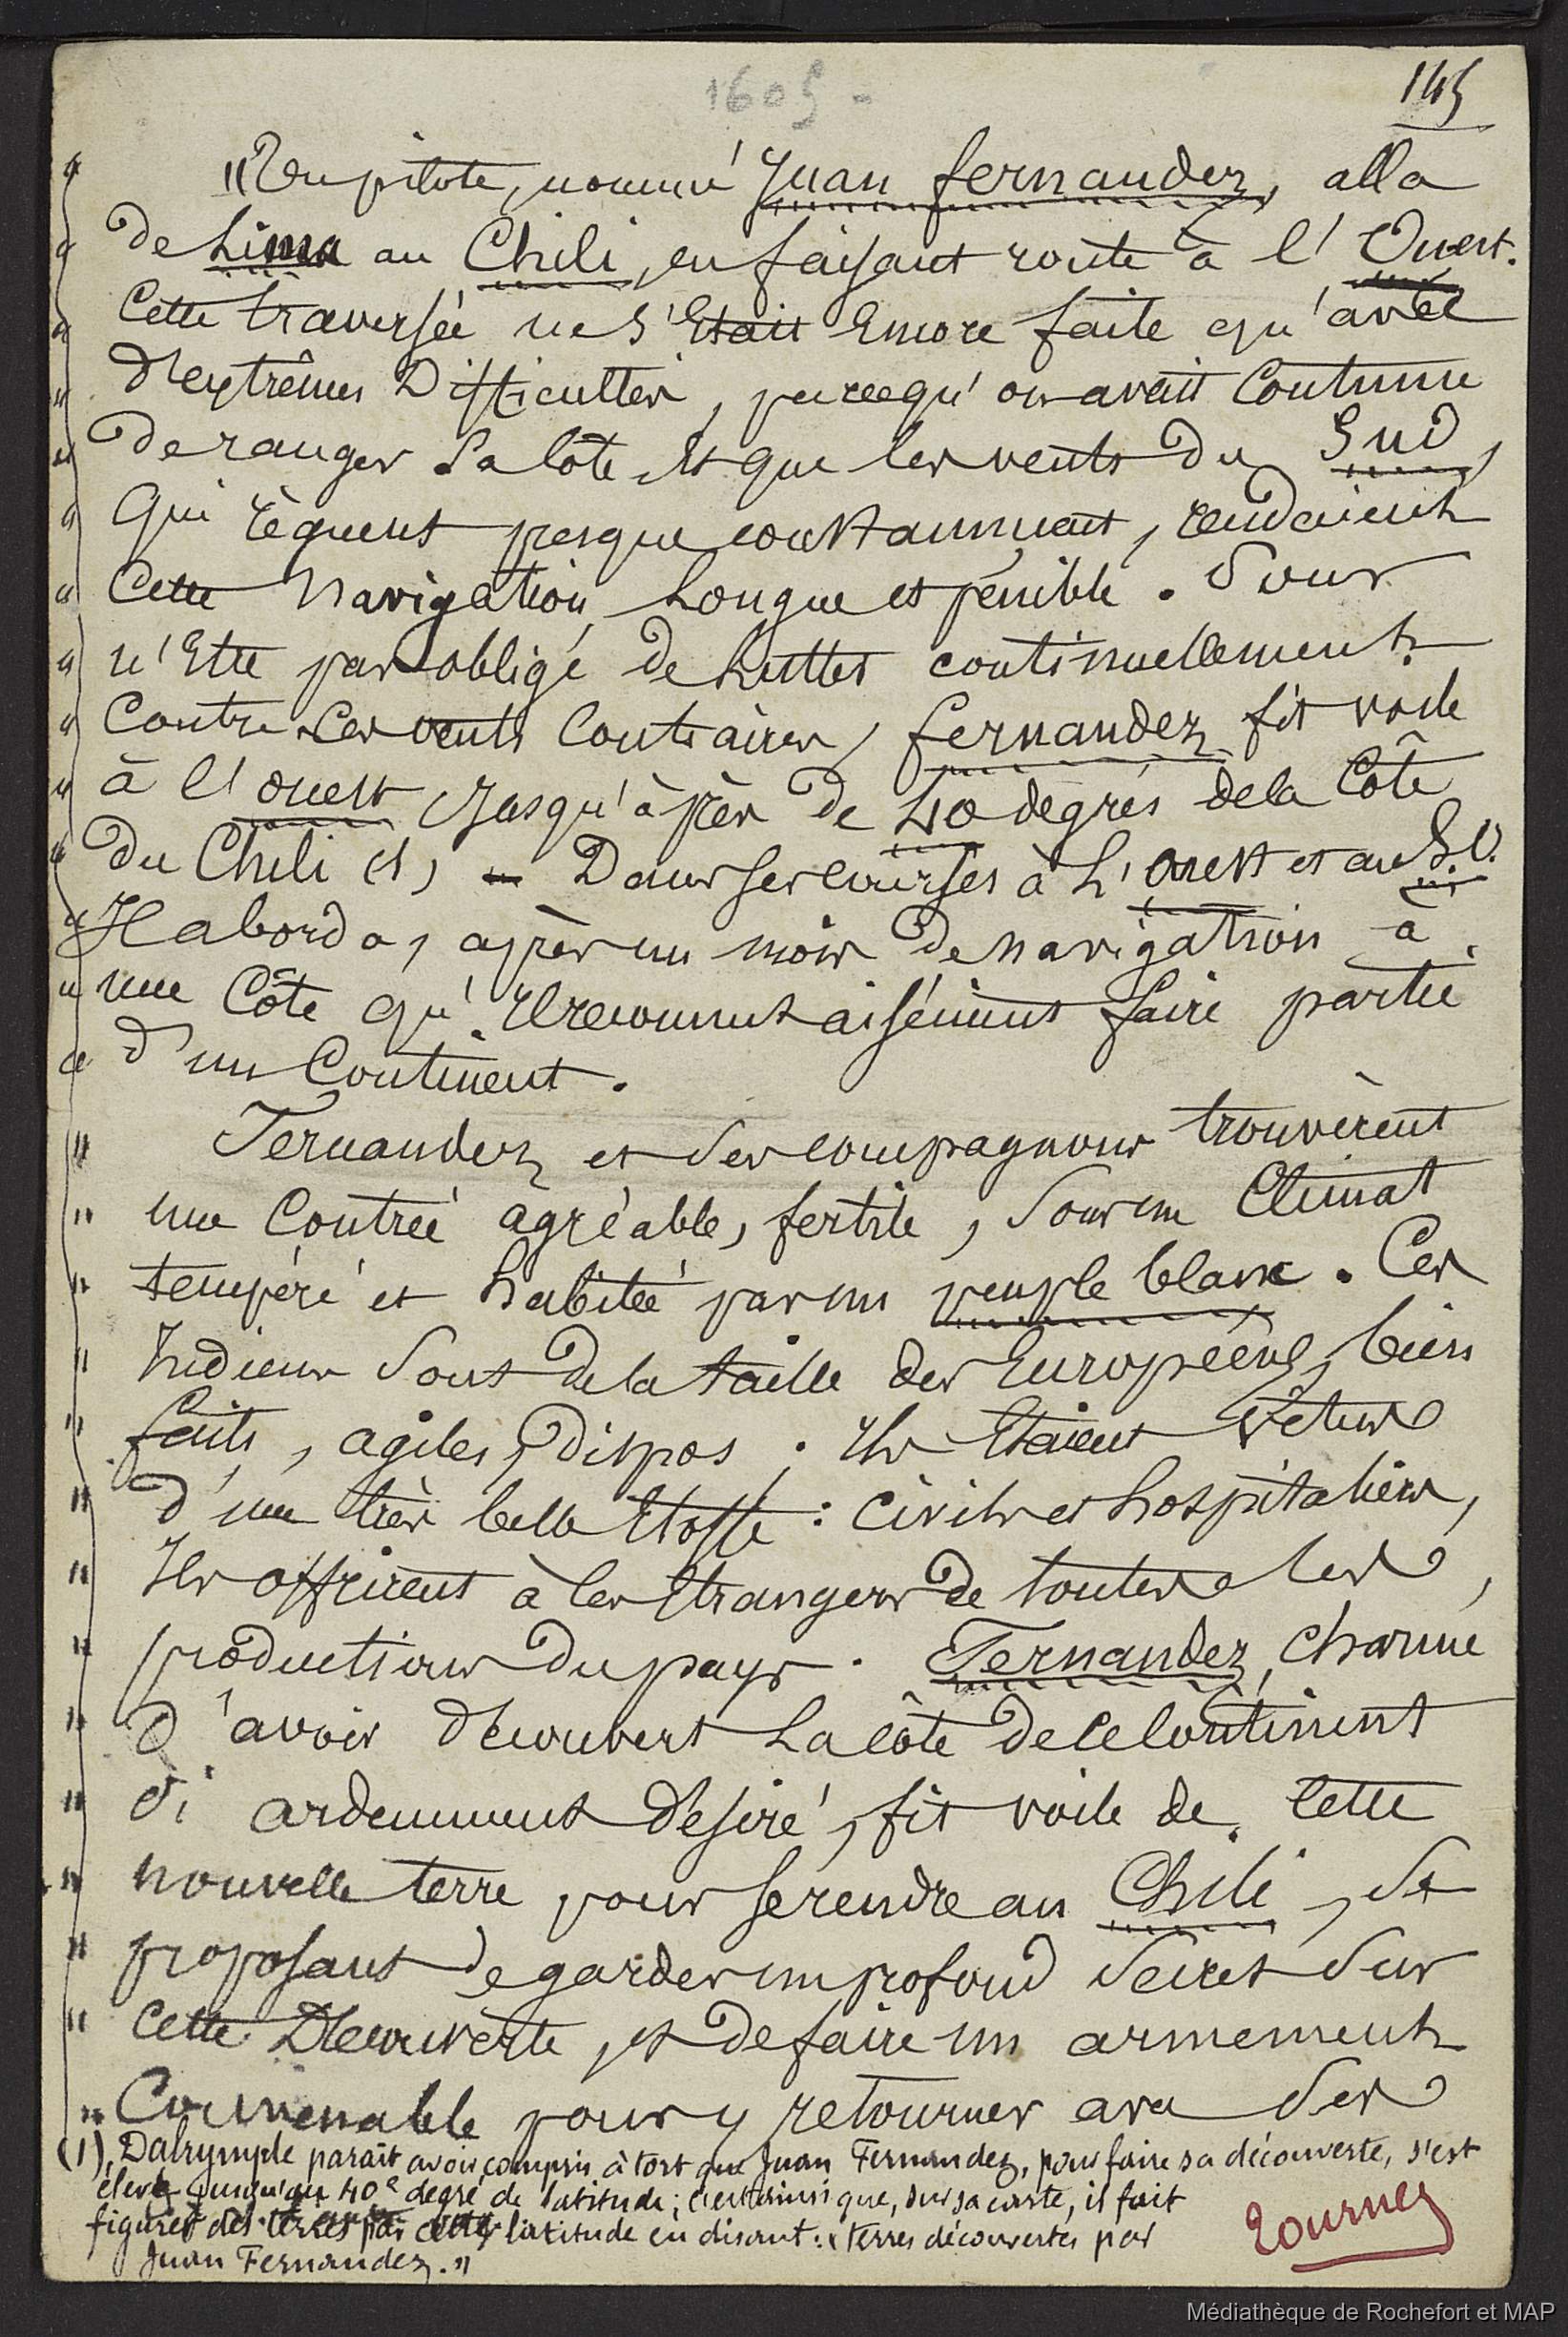 1605 -
145
" Un pilote, nommé Juan fernandez, alla
" de Lima au Chili, en faisant route à l'Ouest.
" Cette traversée ne s'Etait Encore faite qu'avec
" d'extrêmes Difficultés, parcequ'on avait Coutume
" de ranger la Côte, et que les vents du Sud,
" qui règnent presque constamment, rendaient
" Cette Navigation Longue et pénible. Pour
" n'Etre pas obligé de Lutter continuellement
" Contre les vents Contraires, fernandez fit voile
" à l'ouest Jusqu'à près de 40 degrés de la Côte
" du Chili (1) - Dans ses courses à L'Ouest et au S.O.
" Il aborda, après un mois de navigation à
" une Côte qu'Il reconnut aisément faire partie
" d'un Continent.
" Fernandez et ses compagnons trouvèrent
" une Contrée agréable, fertile, sous un Climat
" tempéré et habitée par un peuple blanc. Ces
" Indiens sont de la taille des Européens, bien
" faits, agiles, dispos ; Ils Etaient vêtus
" d'une très belle Etoffe : Civils et hospitaliers,
" Ils offrirent à ces Etrangers de toutes les
" productions du pays. Fernandez, Charmé
" d'avoir découvert La côte de ce Continent
" si ardemment désiré, fit voile de cette
" nouvelle terre pour se rendre au Chili, se
" proposant de garder un profond secret sur
" Cette Découverte, et de faire un armement
" Convenable pour y retourner avec ses
(1), Dalrymple paraît avoir compris à tort que Juan Fernandez, pour faire sa découverte, s'est
élevé jusqu'au 40e degré de latitude ; c'est ainsi que, sur sa carte, il fait
figurer des terres par cette latitude en disant : « terres découvertes par
Juan Fernandez. "
Tournez
Médiathèque de Rochefort et MAP